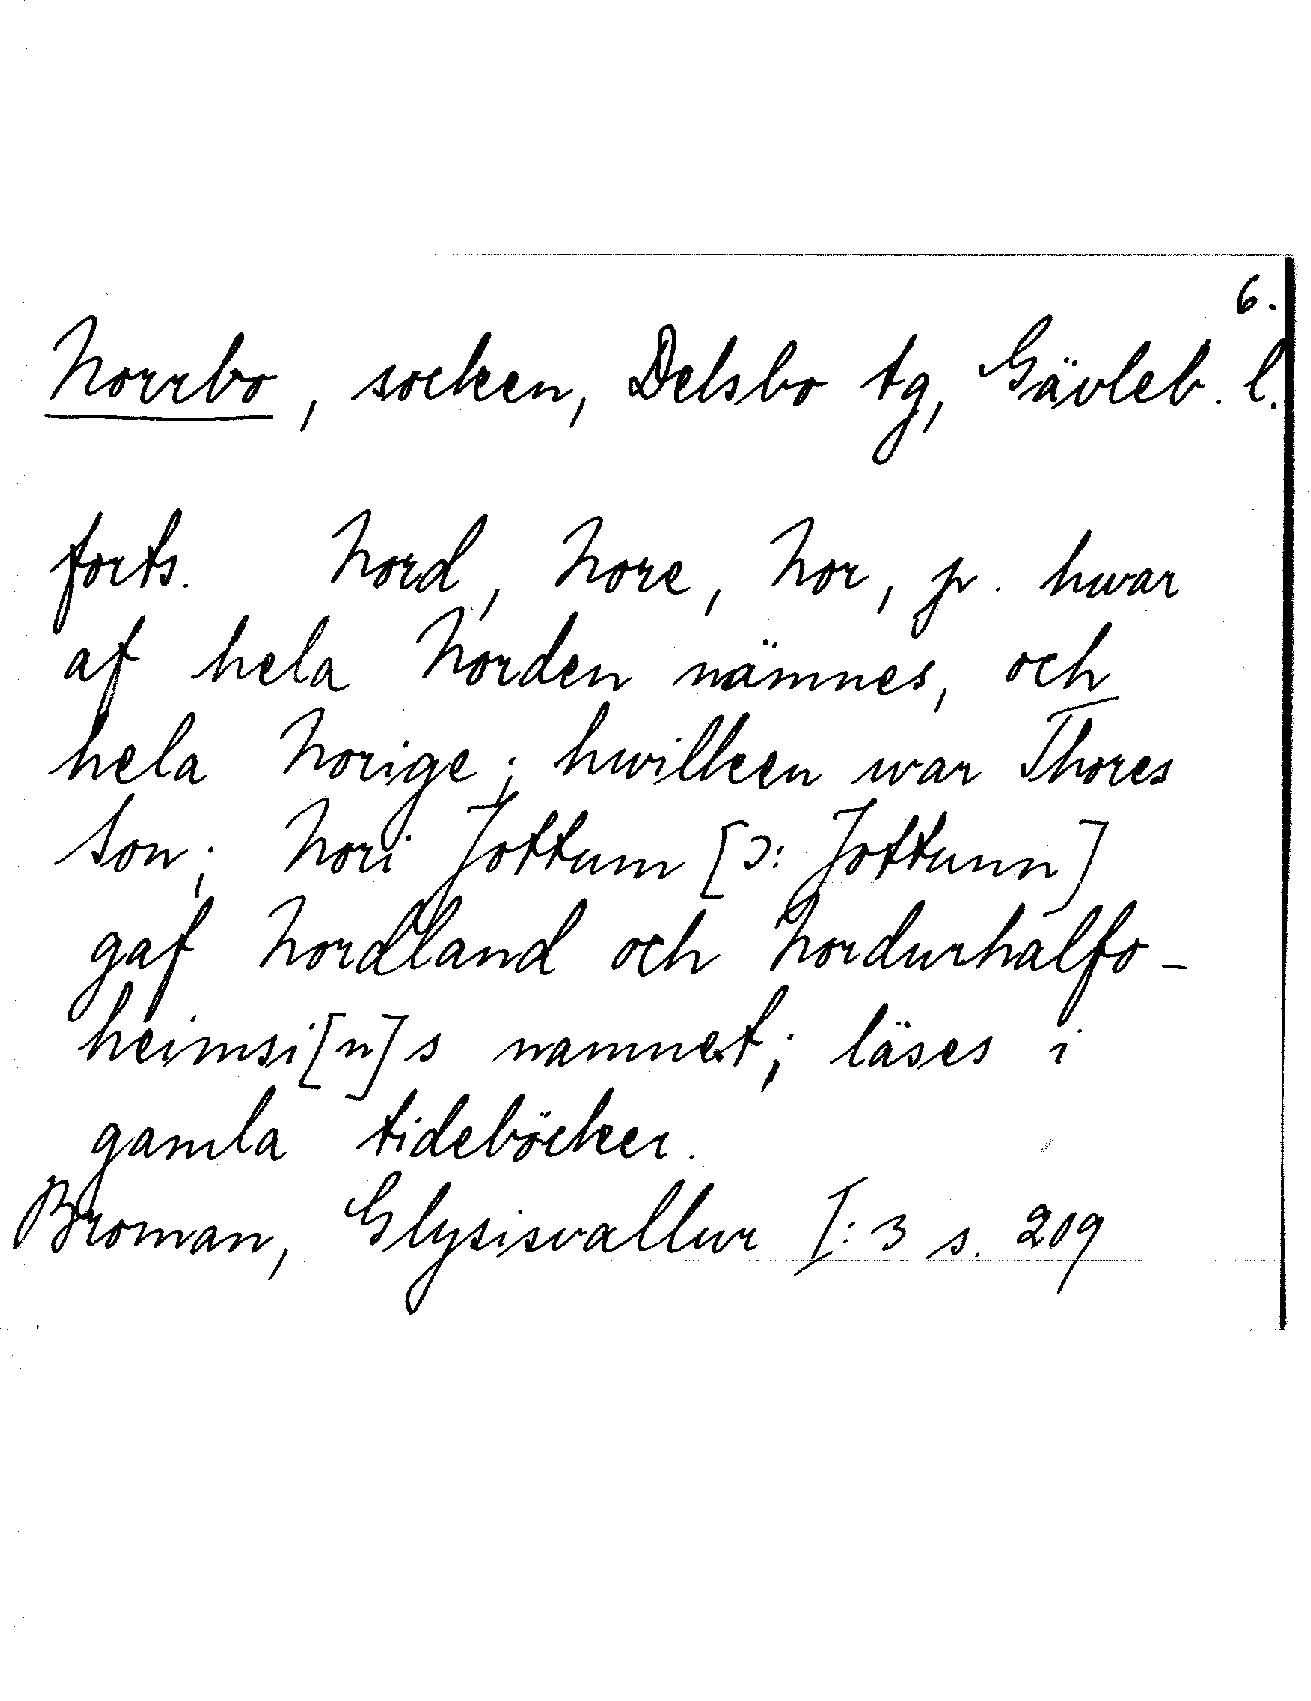 6.
Norrbo, socken, Delsbo tg, Gävleb. l.
forts. Nord, Nore, Nor, p. hwar
af hela Norden nämnes, och
hela Norige; hwilken war Thores
Son; Nori Jottum [ɔ: Jottunn]
gaf Nordland och Nordurhalfo-
heimsi[n]s namnet; läses i
gamla tideböcker.
Broman, Glysisvallur I: 3 s. 209